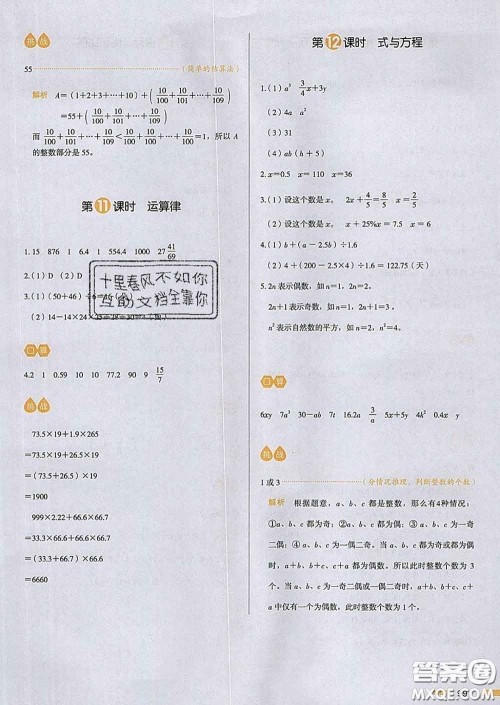 挑战
55 (简单的估算法)
解析 A=(1+2+3+…+10)+(10/100+10/101+…+10/109)
=55+(10/100+10/101+…+10/109)
而 10/100+10/101+…+10/109<10/100+10/100+…+10/100=1，所以 A
的整数部分是 55。
第11课时 运算律
1. 15 876 1 6.4 1 554.4 1000 27 41/69
2. (1) D (2) D
3. (1) (50+46)
(2) 14-14×24
口算
4.2 1 0.59 10 10 77.2 90 9 15/7
挑战
73.5×19+1.9×265
=73.5×19+26.5×19
=(73.5+26.5)×19
=1900
999×2.22+66.6×66.7
=33.3×66.6+66.6×66.7
=(33.3+66.7)×66.6
=6660
十里春风不如你
文档全靠你
第12课时 式与方程
1. (1) a² 3/4x+3y
(2) 4a a²
(3) 31
(4) ab(h+5)
2. x=0.5 x=110 x=36
3. (1) 设这个数是 x。 2x+4/5=8/5 x=2/5
(2) 设这个数是 x。 x+25%x=7.5 x=6
4. (1) b+(a-2.5b)÷1.6
(2) 4+(200-2.5×4)÷1.6=122.75(元)
5. 2n 表示偶数，如 n=1，2n=2。
2n+1 表示奇数，如 n=1，2n+1=3。
n² 表示自然数的平方，如 n=2，n²=4。
口算
6xy 7a³ 30-ab 7t 16.2a 3/a 5x+5y 4k² 0.4x y
挑战
1 或 3 (分情况推理，判断整数的个数)
解析 根据题意，a、b、c 都是整数，那么有4种情况：
①a、b、c 都为奇；②a、b、c 都为偶；③a、b、c 为一奇
二偶；④ a、b、c 为一偶二奇。当 a、b、c 同奇或同偶
时，a+b、b+c、c+a 都为偶数。所以此时整数个数为 3
个。当 a、b、c 为一奇二偶或一偶二奇时，a+b、b+c、c+
a 中仅有一个为偶数，此时整数个数为 1 个。
答案圈
MXQE.COM